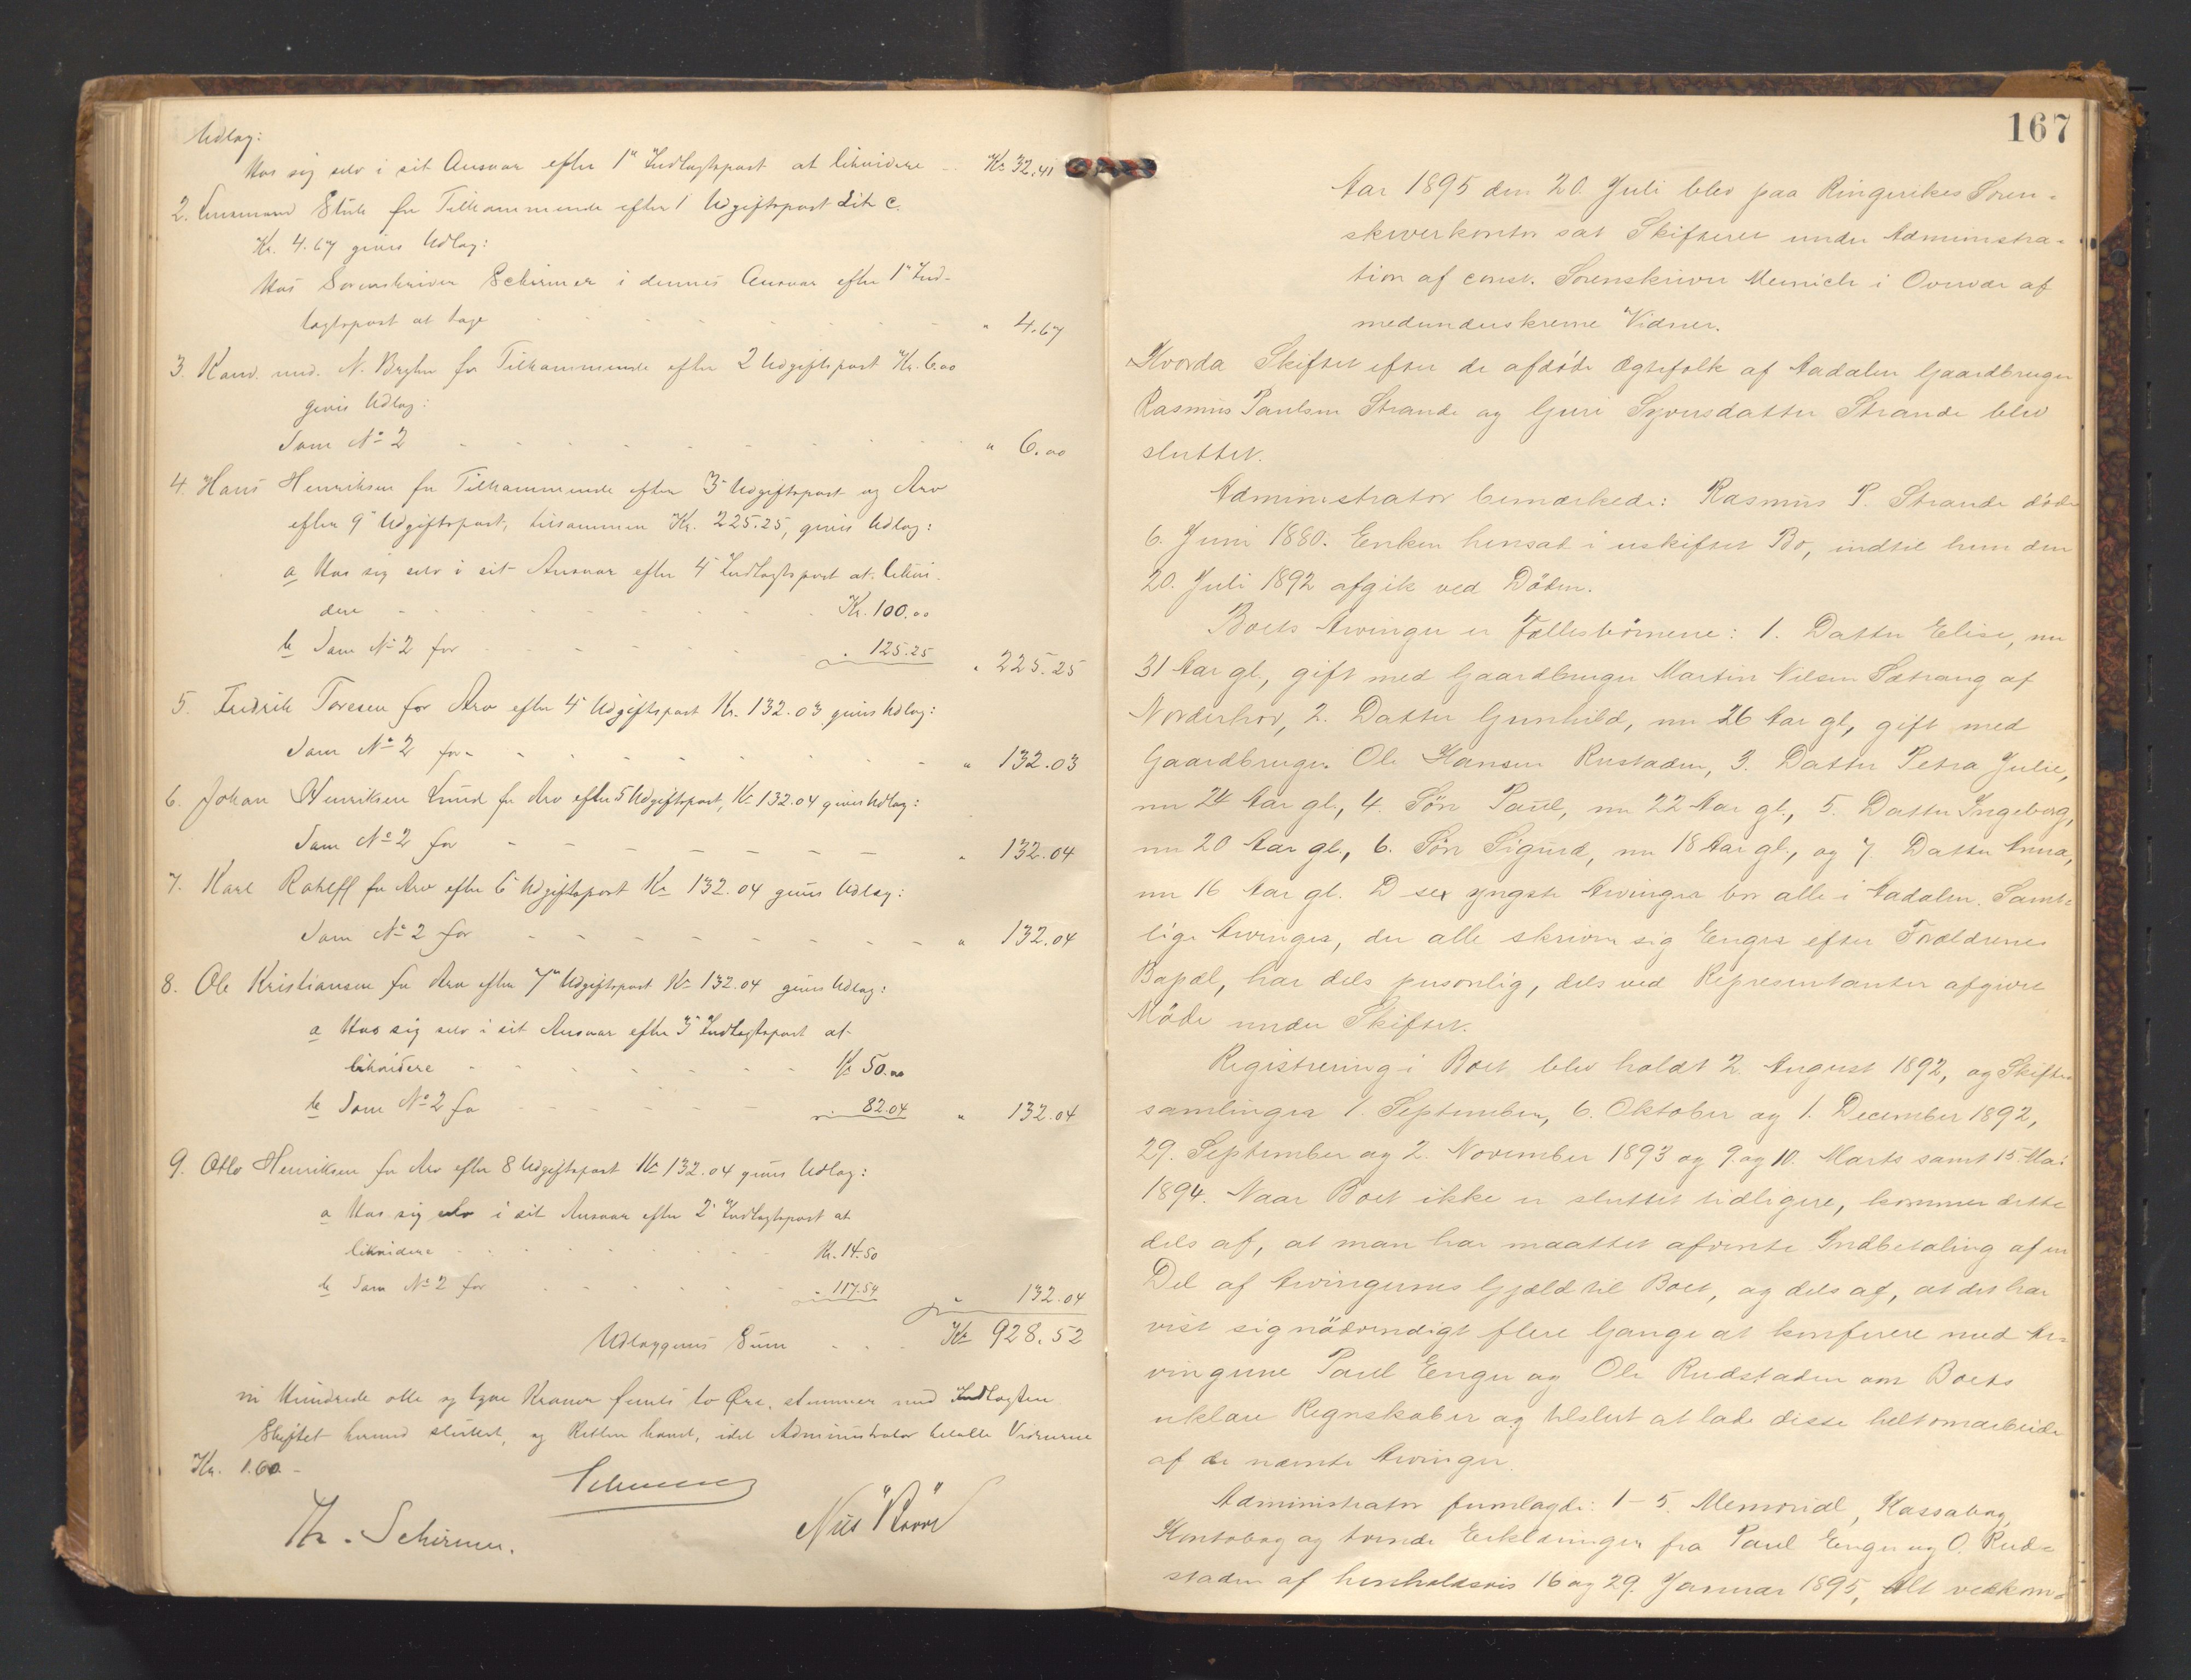 Udlæg:
Hos sig selv i sit Ansvar efter 1ste Indtægtspost at likvidere Kr. 32.41
2. Lensmand Stub for Tilkommende efter 1 Udgiftspost Lit c.
Kr. 4.67 gives Udlæg:
Hos Sorenskriver Schirmer i dennes Ansvar efter 1ste Ind-
tægtspost at tage " 4.67
3. Kand. med. N. for Tilkommende efter 2 Udgiftspost Kr. 6.00
gives Udlæg:
Som No 2 " 6.00
4. Hans Henriksen for Tilkommende efter 3 Udgiftspost og Arv
efter 9 Udgiftspost, tilsammen Kr. 225.25, gives Udlæg:
a Hos sig selv i sit Ansvar efter 4 Indtægtspost at likvi-
dere Kr. 100.00
b Som No 2 for " 125.25 " 225.25
5. Fredrik Toresen for Arv efter 4 Udgiftspost Kr. 132.03 gives Udlæg:
Som No 2 for " 132.03
6. Johan Henriksen Lund for Arv efter 5 Udgiftspost, Kr 132.04 gives Udlæg:
Som No 2 for " 132.04
7. Karl Roleff for Arv efter 6 Udgiftspost Kr 132.04 gives Udlæg:
Som No 2 for " 132.04
8. Ole Kristiansen for Arv efter 7 Udgiftspost Kr 132.04 gives Udlæg:
a Hos sig selv i sit Ansvar efter 3 Indtægtspost at
likvidere Kr 50.00
b Som No 2 for " 82.04 " 132.04
9. Otto Henriksen for Arv efter 8 Udgiftspost Kr 132.04 gives Udlæg:
a Hos sig selv i sit Ansvar efter 2 Indtægtspost at
likvidere Kr. 14.50
b Som No 2 for " 117.54 " 132.04
Udlæggenes Sum Kr 928.52
ni Hundrede otte og tyve Kroner femti to Øre, stemmer med Indtægten
Skiftet hermed sluttet, og Retten hævet, idet Administrator betalte Vidnerne
Kr. 1.60.-
Schirmer
Th. Schirmer. Nils
167
Aar 1895 den 20. Juli blev paa Ringerikes Soren-
skriverkontor sat Skifteret under Administra-
tion af const. Sorenskriver Meinich i Overvær af
medunderskrevne Vidner.
Hvorda Skiftet efter de afdøde Ægtefolk af Aadalen Gaardbruger
Rasmus Paulsen Strande og Guri Syversdatter Strande blev
sluttet.
Administrator bemærkede: Rasmus P. Strande døde
6. Juni 1880. Enken hensad i uskiftet Bo, indtil hun den
20. Juli 1892 afgik ved Døden.
Boets Arvinger er Fællesbørnene: 1. Datter Elise, nu
31 Aar gl., gift med Gaardbruger Martin Nilsen Sætrang af
Norderhov, 2. Datter Gunhild, nu 26 Aar gl, gift med
Gaardbruger Ole Hansen Rustaden, 3. Datter Petra Julie,
nu 24 Aar gl., 4. Søn Paul, nu 22 Aar gl., 5. Datter Ingeborg,
nu 20 Aar gl., 6. Søn Sigurd, nu 18 Aar gl., og 7 Datter Anna,
nu 16 Aar gl. D sex yngste Arvinger bor alle i Aadalen. Samt-
lige Arvinger, der alle skriver sig Enger efter Forældrenes
Bopæl, har dels personlig, dels ved Representanter afgivet
Møde under Skiftet.
Registrering i Boet blev holdt 2. August 1892, og Skifte-
samlinger 1. September, 6. Oktober og 1. December 1892,
29. September og 2. November 1893 og 9. og 10. Marts samt 15. Mai
1894. Naar Boet ikke er sluttet tidligere, kommer dette
dels af, at man har maattet afvente Indbetaling af en
Del af Arvingernes Gjæld til Boet, og dels af, at det har
vist sig nødvendigt flere Gange at konferere med Ar-
vingerne Paul Enger og Ole Rudstaden om Boets
uklare Regnskaber og tilslut at lade disse helt omarbeide
af de nævnte Arvinger.
Administrator fremlagde: 1-5. Memorial, Kassabog,
Kontobog og tvende Erklæringer fra Paul Enger og O. Rud-
staden af henholdsvis 16 og 29. Januar 1895, Alt vedkom-